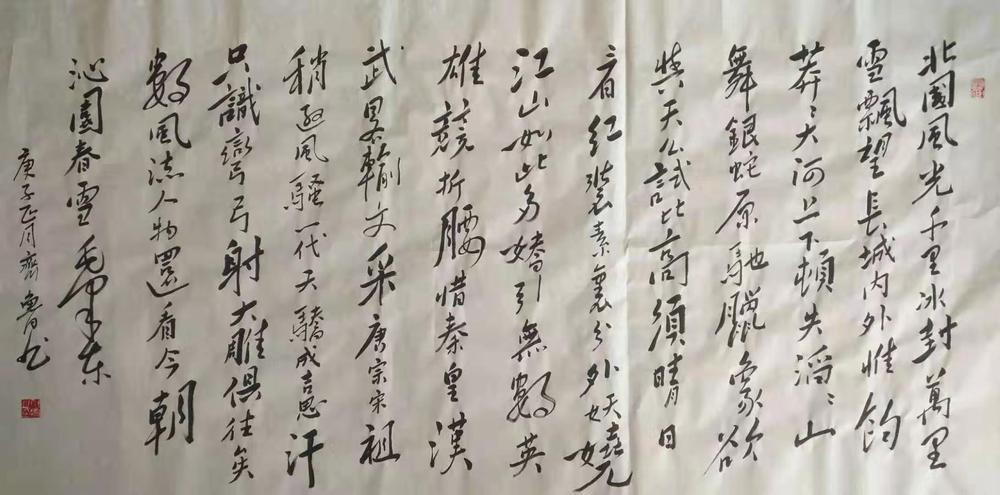 北國風光千里冰封萬里
雪飄望長城内外惟餘
莽〻大河上下頓失滔〻山
舞銀蛇原馳臘象欲
與天公試比高須晴日
看紅裝素裹分外妖嬈
江山如此多嬌引無數英
雄競折腰惜秦皇漢
武畧輸文采唐宗宋祖
稍遜風騷一代天驕成吉思汗
只識彎弓射大雕俱往矣
數風流人物還看今朝
沁園春雪毛澤东
庚子正月齊魯書